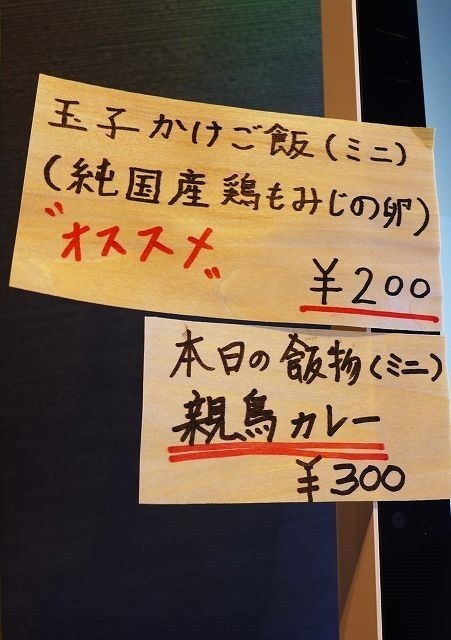 玉子かけご飯(ミニ)
(純国産鶏もみじの卵)
"オススメ"
¥200
本日の飯物(ミニ)
親鳥カレー
¥300